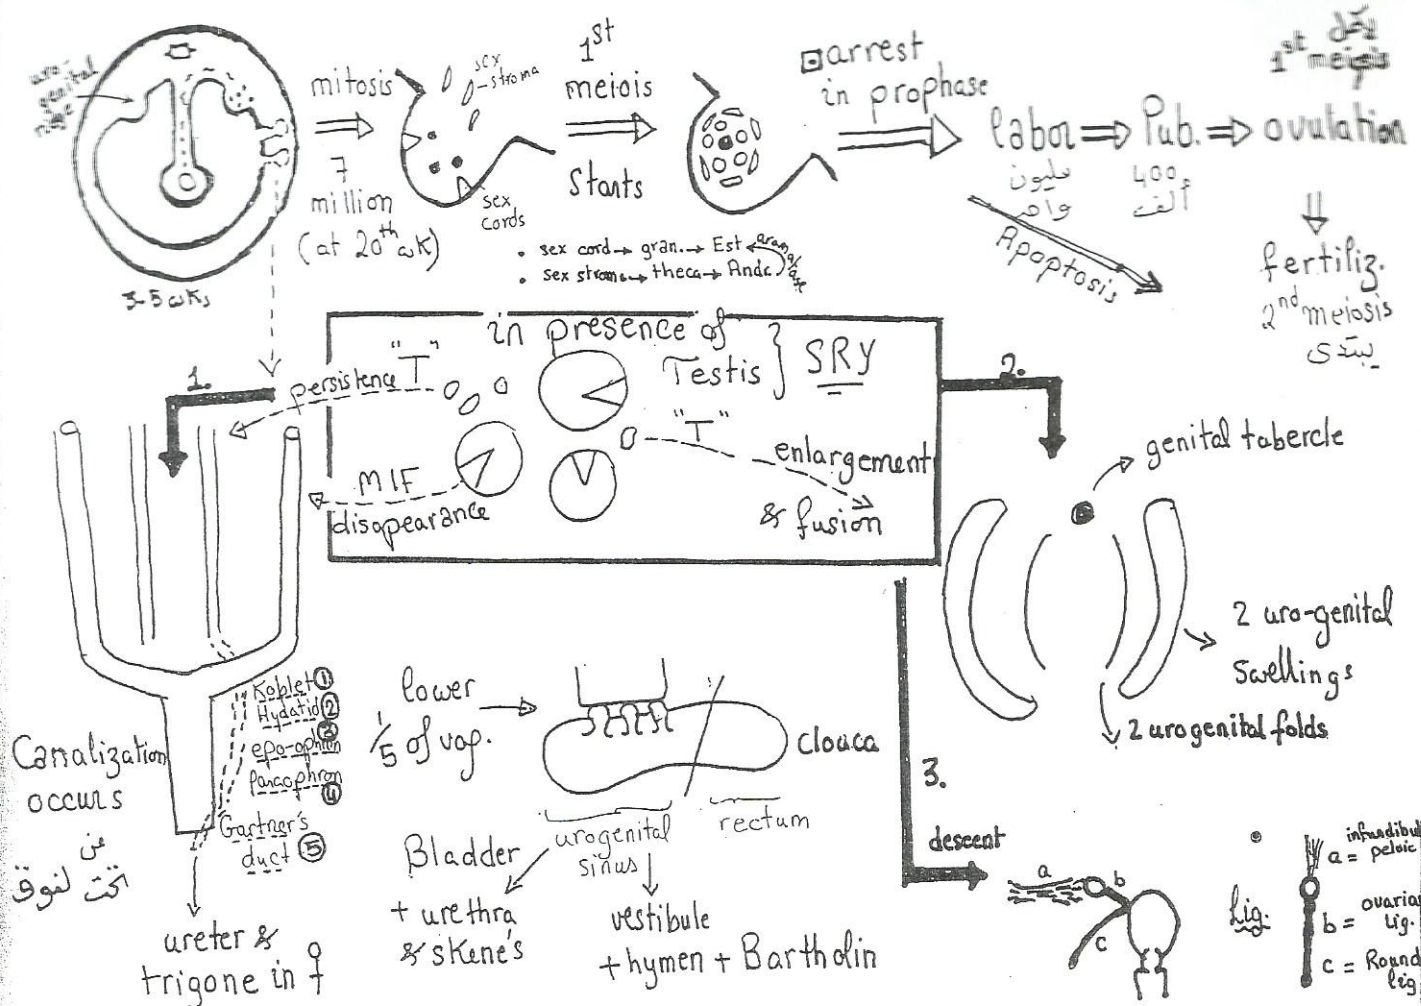 uro-
genital
rige
3-5 wks
mitosis
7
million
(at 20th wk)
sex
stroma
sex
cords
1st
meiois
starts
arrest
in prophase
labor ⇒ Pub. ⇒ ovulation
مليون
واحد
400
ألف
Apoptosis
يكمل
1st meiosis
fertiliz.
2nd meiosis
يبتدى
• sex cord → gran. → Est
• sex stroma → theca → Andr.
aromatase
in presence of
Testis } SRY
"T"
persistence
MIF
disapearance
"T"
enlargement
& fusion
1.
2.
genital tabercle
2 uro-genital
swellings
2 urogenital folds
Canalization
occurs
من
تحت لفوق
Koblet ①
Hydatid ②
epo-ophron ③
Paroophron ④
Gartner's
duct ⑤
ureter &
trigone in ♀
lower
1/5 of vag.
clouca
urogenital
sinus
rectum
Bladder
+ urethra
& skene's
vestibule
+ hymen + Bartholin
3.
descent
a
b
c
Lig.
a = infundibul
pelvic
b = ovarian
Lig.
c = Round
lig